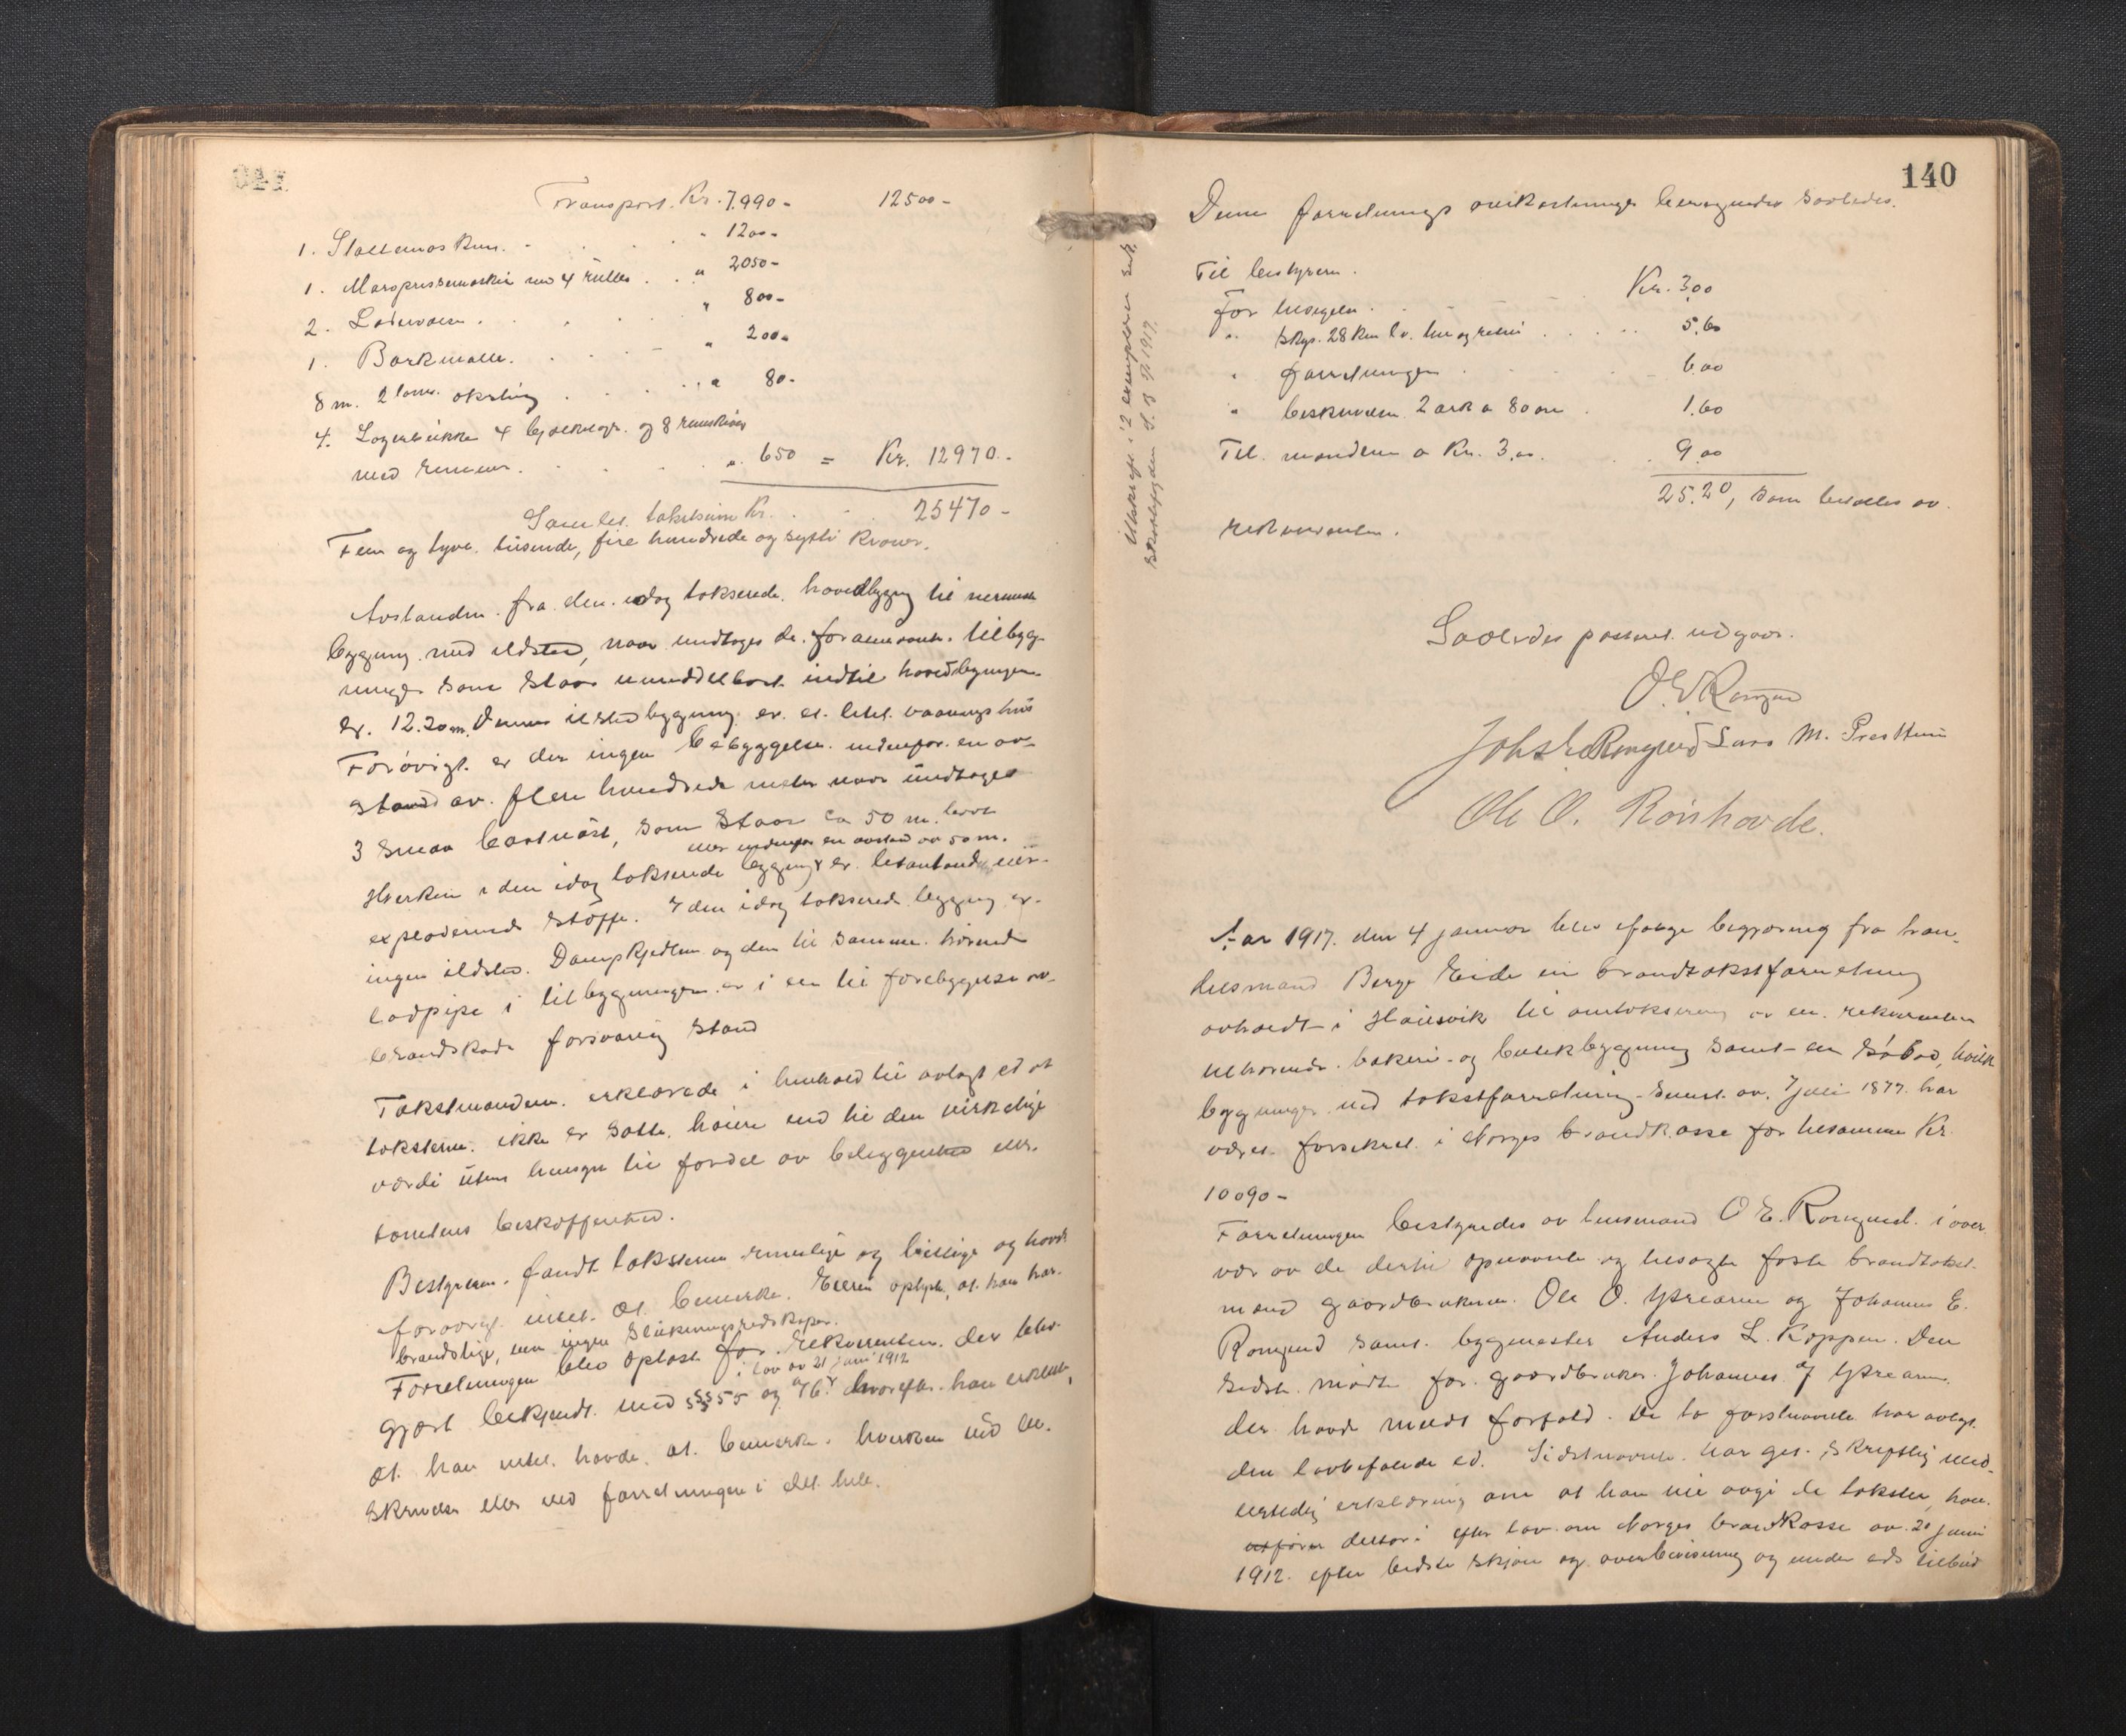 Transport. Kr. 7.990 - 12500 -
1. Stollemaskin. " 1200 -
1. Marspressemaskin med 4 ruller " 2050 -
2. " 800 -
1. Barkmølle. " 200 -
8 m. 2 tom. oksling " 80 -
4. Lagerbukke 4 og 8 remskiver
med remmer. " 650 = Kr. 12970. -
Samlet takstsum Kr. 25470 -
Fem og tyve tusende, fire hundrede og sytti kroner.
Avstanden fra den idag takserede hovedbygning til nærmeste
bygning med ildsted, naar undtages de foran nævnte tilbyg-
ninger som staar umiddelbart indtil hovedbygningen
er 12.20 m. Denne ildstedbygning er et litet vaaningshus
Forøvrigt er der ingen bebyggelse indenfor en av-
stand av flere hundrede meter naar undtages
3 smaa baatnøst, som staar ca 50 m. borte
eller indenfor en avstand av 50 m.
Hverken i den idag takserede bygning er letantændelige eller
exploderende stoffe. I den idag takserede bygning er
ingen ildsted. Dampkjedlen og den til samme hørende
lodpipe i tilbygningen er i en til forebyggelse av
brandskade forsvarlig stand
Takstmændene erklærede i henhold til avlagt ed at
taksterne ikke er satte høiere end til den virkelige
værdi uten hensyn til fordel av beliggenhed eller
tomtens beskaffenhed.
Bestyreren fandt taksterne rimelige og billige og havde
forøvrigt intet at bemerke. Eieren oplyste, at han har
brandstige, men ingen slukningsredskaper.
Forretningen blev oplæst for rekvirenten der blev
i lov av 21 juni 1912
gjort bekjendt med §§ 55 og 76 hvorefter han erklærte,
at han intet havde at bemerke hverken ved be-
skrivelsen eller ved forretningen i det hele.
140
Denne forretnings omkostninger beregnedes saaledes.
Til bestyreren.
For besigelse Kr. 3,00
" skys. 28 km lv. tur og retur 5.60
" forretningen 6.00
" beskrivelsen 2 ark a 80 øre 1.60
Til mændene a Kr. 3,00. 9,00
25.20, som betales av
rekvirenten.
Utskrift i 2 exemplarer
1917
Saaledes passeret utgaar.
O E Romgud
Johs E Romgud Lars M. Presttun
Ole O. Røishovde.
Aar 1917. den 4 januar blev ifølge begjæring fra han-
delsmand Berge Eide en brandtakstforretning
avholdt i Hausvik til omtaksering av en rekvirenten
tilhørende bakeri- og butikbygning samt en sjøbod, hvilke
bygninger ved takstforretning senest av. 7 juli 1877. har
været forsikret i Norges Brandkasse for tilsammen Kr.
10090 -
Forretningen bestyredes av lensmand O E. Romgud. i over-
vær av de dertil opnævnte og besøgte faste brandtakst-
mænd gaardbrukerne Ole O. Ystrearne og Johannes E.
Romgud samt bygmester Anders L. Koppen. Den
sidste møtte for gaardbruker Johannes J Ystrearne
der havde meldt forfald. De to førstnævnte har avlagt
den lovbefalede ed. Sidstnævnte har git skriftlig med-
edelig erklæring om at han vil avgi de takster han
utfører dertor i efter lov om Norges Brandkasse av 21 juni
1912. efter bedste skjøn og overbevisning og under eds tilbud